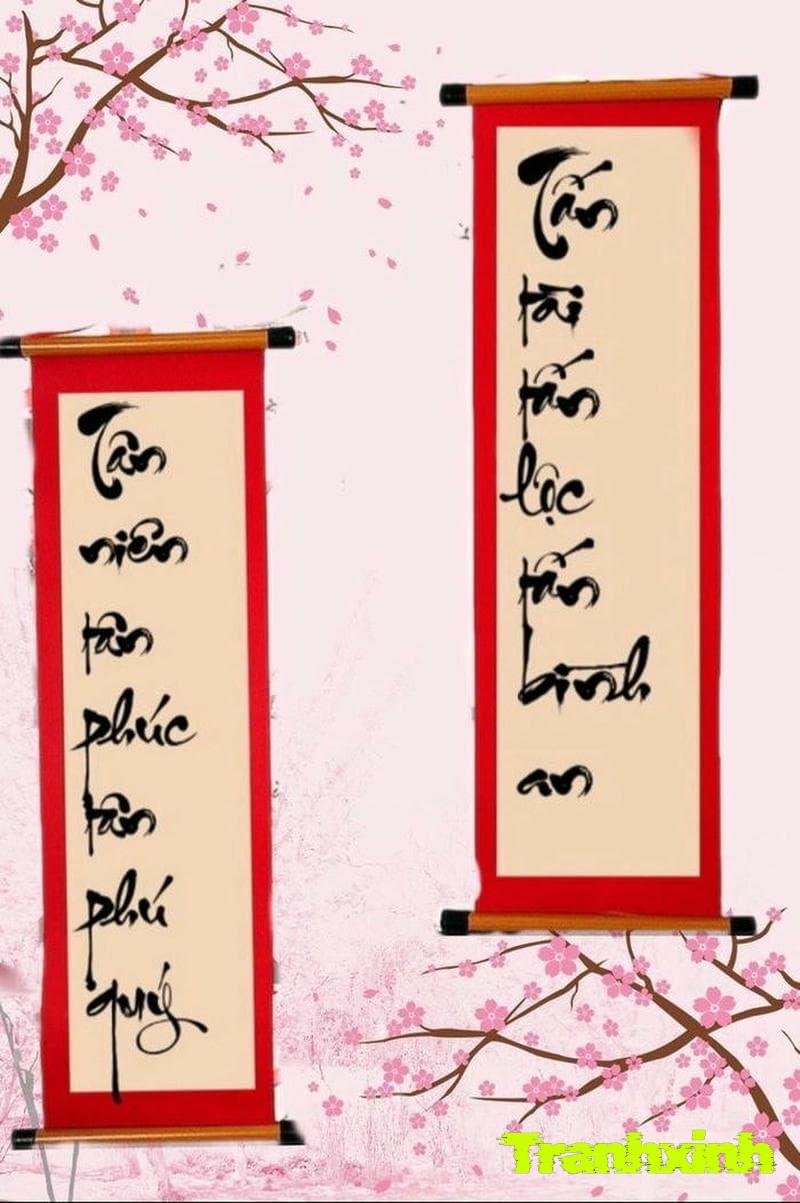 Tân
niên
tân
phúc
tân
phú
quý
Tấn
tài
tấn
lộc
tấn
bình
an
Tranhxinh